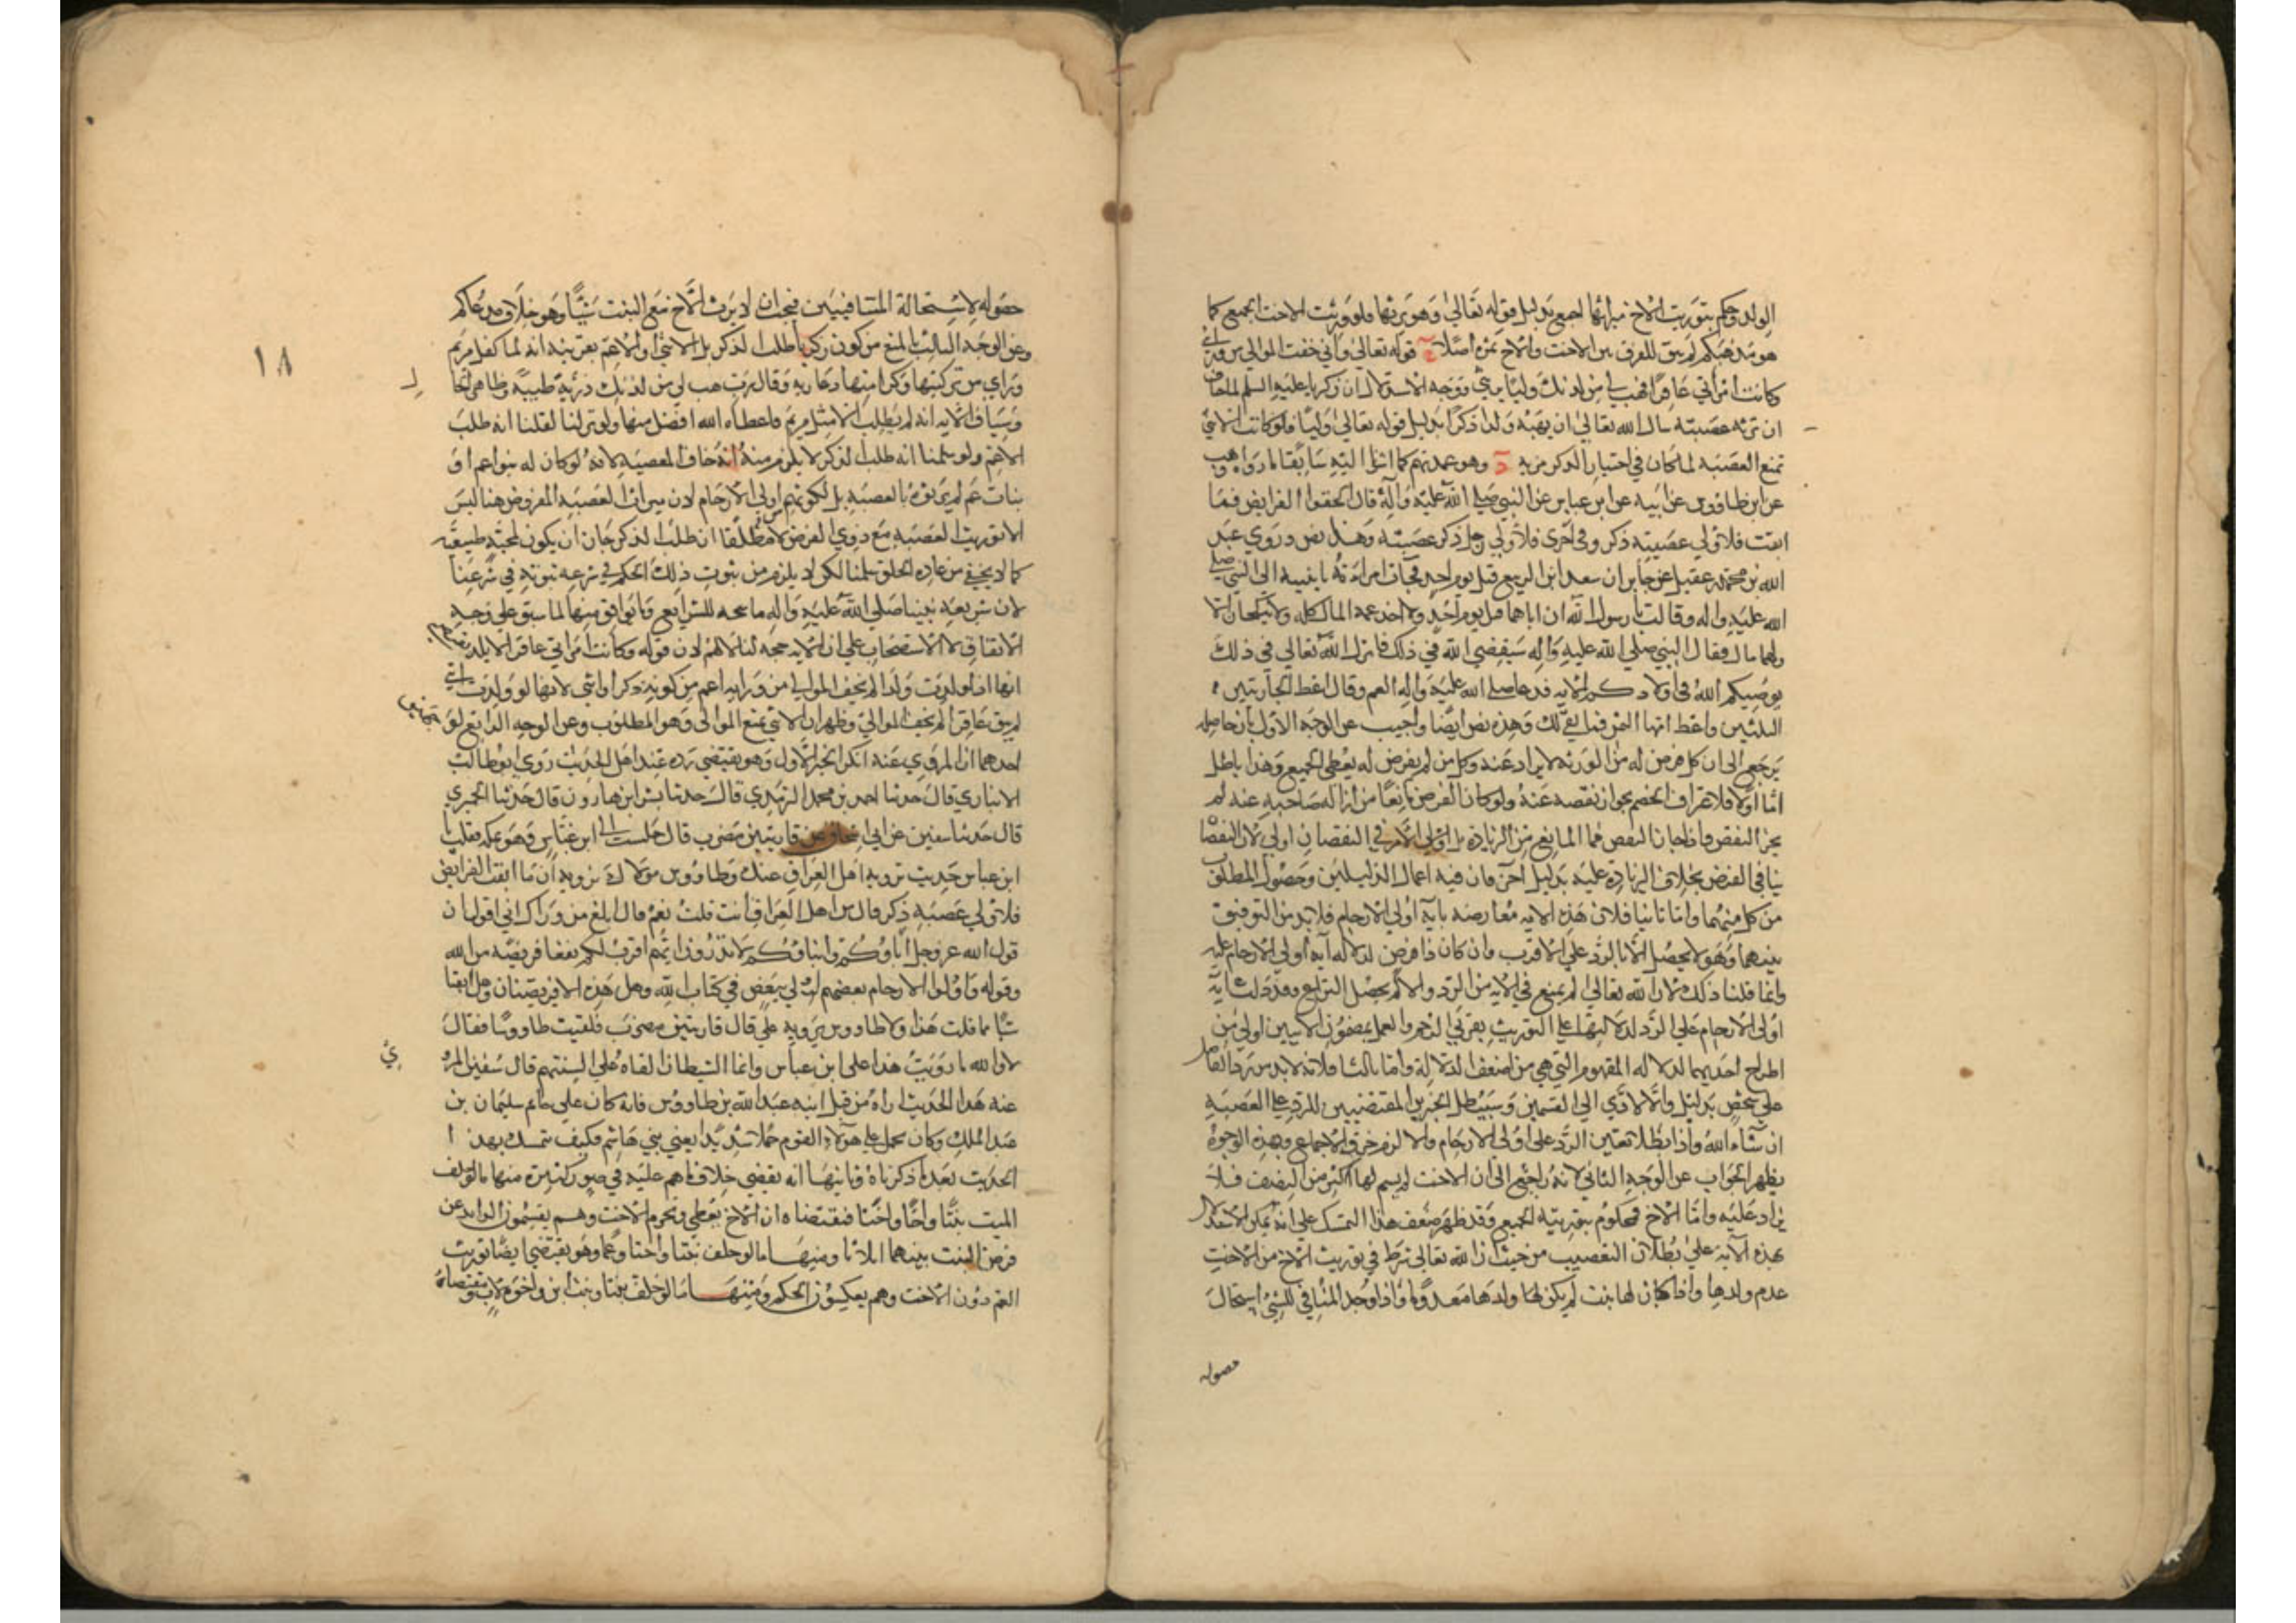 الولد وحكم بتوريث الاخ ميراثها اجمع بدليل قوله تعالى وهو يرثها فلو ورثت الاخت الجميع كما
هو مذهبكم لم يبق للفرق بين الاخت والاخ ثمرة اصلا ج قوله تعالى واني خفت الموالي من ورائي
وكانت امراتي عاقرا فهب لي من لدنك وليا يرثني ووجه الاستدلال ان زكريا عليه السلم لما خاف
ان ترثه عصبته سال الله تعالى ان يهبه ولدا ذكرا بدليل قوله تعالى وليا فلو كانت الانثى
تمنع العصبة لما كان في اختيار الذكر مزية د وهو عمدتهم كما اشرنا اليه سابقا ما رواه وهيب
عن ابن طاووس عن ابيه عن ابن عباس عن النبي صلى الله عليه وآله قال الحقوا الفرايض فما
ابقت فلاولي عصبة ذكر وفي اخرى فلاولي رجل ذكر عصبة وهذا نص ه وروي عبد
الله بن محمد بن عقيل عن جابر ان سعد ابن الربيع قتل يوم احد فجات امراءته بابنتيه الى النبي صلى
الله عليه واله وقالت يا رسول الله ان اباهما قتل يوم احد واخذ عمهما المال كله ولا تنكحان الا
ولهما مال فقال النبي صلى الله عليه وآله سيقضي الله في ذلك فانزل الله تعالى في ذلك
يوصيكم الله في اولادكم الآية فدعا صلى الله عليه واله العم وقال اعط الجاريتين
الثلثين واعط امهما الثمن وما بقي لك وهذه نص ايضا واجيب عن الوجه الاول بان حاصله
يرجع الى ان كل من فرض له من الورثة لا يزاد عنه وكل من لم يفرض له يعطى الجميع وهذا باطل
اما اولا فلاعتراف الخصم بجواز نقصه عنه ولو كان الفرض مانعا من ازالة صاحبه عنه لم
يجز النقص فاذا جاز النقص فما المانع من الزيادة بل اولى الامر في النقصان اولى لان النقصان
ينافي الفرض بخلاف الزيادة عليه بدليل آخر فان فيه اعمال الدليلين وحصول المطلوب
من كل منهما واما ثانيا فلان هذه الآية معارضة بآية اولي الارحام فلا بد من التوفيق
بينهما وهو لا يحصل الا بالرد على الاقرب وان كان ذا فرض لدلالة آية اولي الارحام عليه
وانما قلنا ذلك لان الله تعالى لم يمنع في الآية من الرد والا لم يحصل النزاع وقد دلت آية
اولى الارحام على الرد لدلالتها على التوريث بقربى الرحم والعمل بمضمون الآيتين اولى من
اطراح احديهما لدلالة المفهوم التي هي من اضعف الدلالة واما ثالثا فلانه لا بد من رد الفاضل
على شخص بدليل والا لادى الى القسمين وسيبطل الخبرين المقتضيين للرد على العصبة
ان شاء الله واذا بطلا تعين الرد على اولى الارحام والا لزم خرق الاجماع وبهذه الوجوه
يظهر الجواب عن الوجه الثاني لانه راجع الى ان الاخت لم يسم لها اكثر من النصف فلا
يزاد عليه واما الاخ فمحكوم بتوريثه الجميع وقد ظهر ضعف هذا التمسك على انه يمكن الاستدلال
بهذه الآية على بطلان التعصيب من حيث ان الله تعالى شرط في توريث الاخ من الاخت
عدم ولدها واذا كان لها بنت لم يكن لها ولدها معدوما واذا وجد المنافي للشئ استحال
حصوله
حصوله لاستحالة المتنافيين فيجب ان لا يرث الاخ مع البنت شيئا وهو خلاف مدعاكم
وعن الوجه الثالث بالمنع من كون زكريا طلب الذكر بل الانثى او الاعم بقرينة انه لما كفل مريم
وراى من تركيبها وكرامتها دعا ربه وقال رب هب لي من لدنك ذرية طيبة وظاهر الحال
وسياق الآية انه لم يطلب الا مثل مريم فاعطاه الله افضل منها ولو نزلنا لقلنا انه طلب
الاعم ولو سلمنا انه طلب الذكر لا يلزم منه انه خاف العصبة لانه لو كان له بنو اعم او
بنات عم لم يرثوه بالعصبة بل لكونهم اولى الارحام لان ميراث العصبة المفروض هنا ليس
الا توريث العصبة مع ذوي الفرض لا مطلقا ان طلب الذكر جاز ان يكون لمحبته طبيعة
كما لا يخفى من عادة الخلق سلمنا لكن لا يلزم من ثبوت ذلك الحكم في شرعه ثبوته في شرعنا
لان شريعة نبينا صلى الله عليه واله ناسخة للشرايع وما يوافق منها لما سبق على وجه
الاتفاق لا الاستصحاب على ان الآية حجة لنا لا لهم لان قوله وكانت امراتي عاقرا لا يلد يفهم
انها اذا ولدت ولدا لم يخف الموالي من ورايه اعم من كونه ذكرا وانثى لانها لو ولدت انثى
لم يبق عاقرا لم يخف الموالي وظهر ان الانثى تمنع الموالي وهو المطلوب وعن الوجه الرابع لوجهين
احدهما ان المروي عنه انكر الخبر الاول وهو يقتضي رده عند اهل الحديث روى ابو طالب
الانباري قال حدثنا احمد بن محمد البربري قال حدثنا بشر ابن هارون قال حدثنا الحميري
قال حدثنا سفين عن ابي اسحاق عن قاريتين مضرب قال جلست الى ابن عباس وهو بمكة فقلت يا
ابن عباس حديث ترويه اهل العراق عنك وطاووس مولاك يرويه ان ما ابقت الفرايض
فلاولي عصبة ذكر قال من اهل العراق انت قلت نعم قال ابلغ من وراك اني اقول ان
قول الله عز وجل اباؤكم وابناؤكم لا تدرون ايهم اقرب لكم نفعا فريضة من الله
وقوله واولوا الارحام بعضهم اولى ببعض في كتاب الله وهل هذه الا فريضتان وهل ابقتا
شيا ما قلت هذا ولا طاووس يرويه علي قال قاريتين مضرب فلقيت طاووسا فقال
لا والله ما رويت هذا على ابن عباس وانما الشيطان القاه على السنتهم قال سفين اراه
عنه هذا الحديث اراه من قبل ابنه عبد الله بن طاووس فانه كان على خاتم سليمان بن
عبد الملك وكان يحمل على هؤلاء القوم حملا شديدا يعني بني هاشم فكيف يتمسك بهذا
الحديث بعد ما ذكرناه وثانيها انه يقتضي خلاف ما هم عليه في صور كثيرة منها ما لو خلف
الميت بنتا واخا واختا فمقتضاه ان الاخ يعطى وتحرم الاخت وهم يقسمون الزايد عن
فرض البنت بينهما اثلاثا ومنها ما لو خلف بنتا واختا وعما وهو يقتضي ايضا توريث
العم دون الاخت وهم يعكسون الحكم ومنها ما لو خلف بنتا وبنت ابن واخوة لاب ومقتضاه
١٨